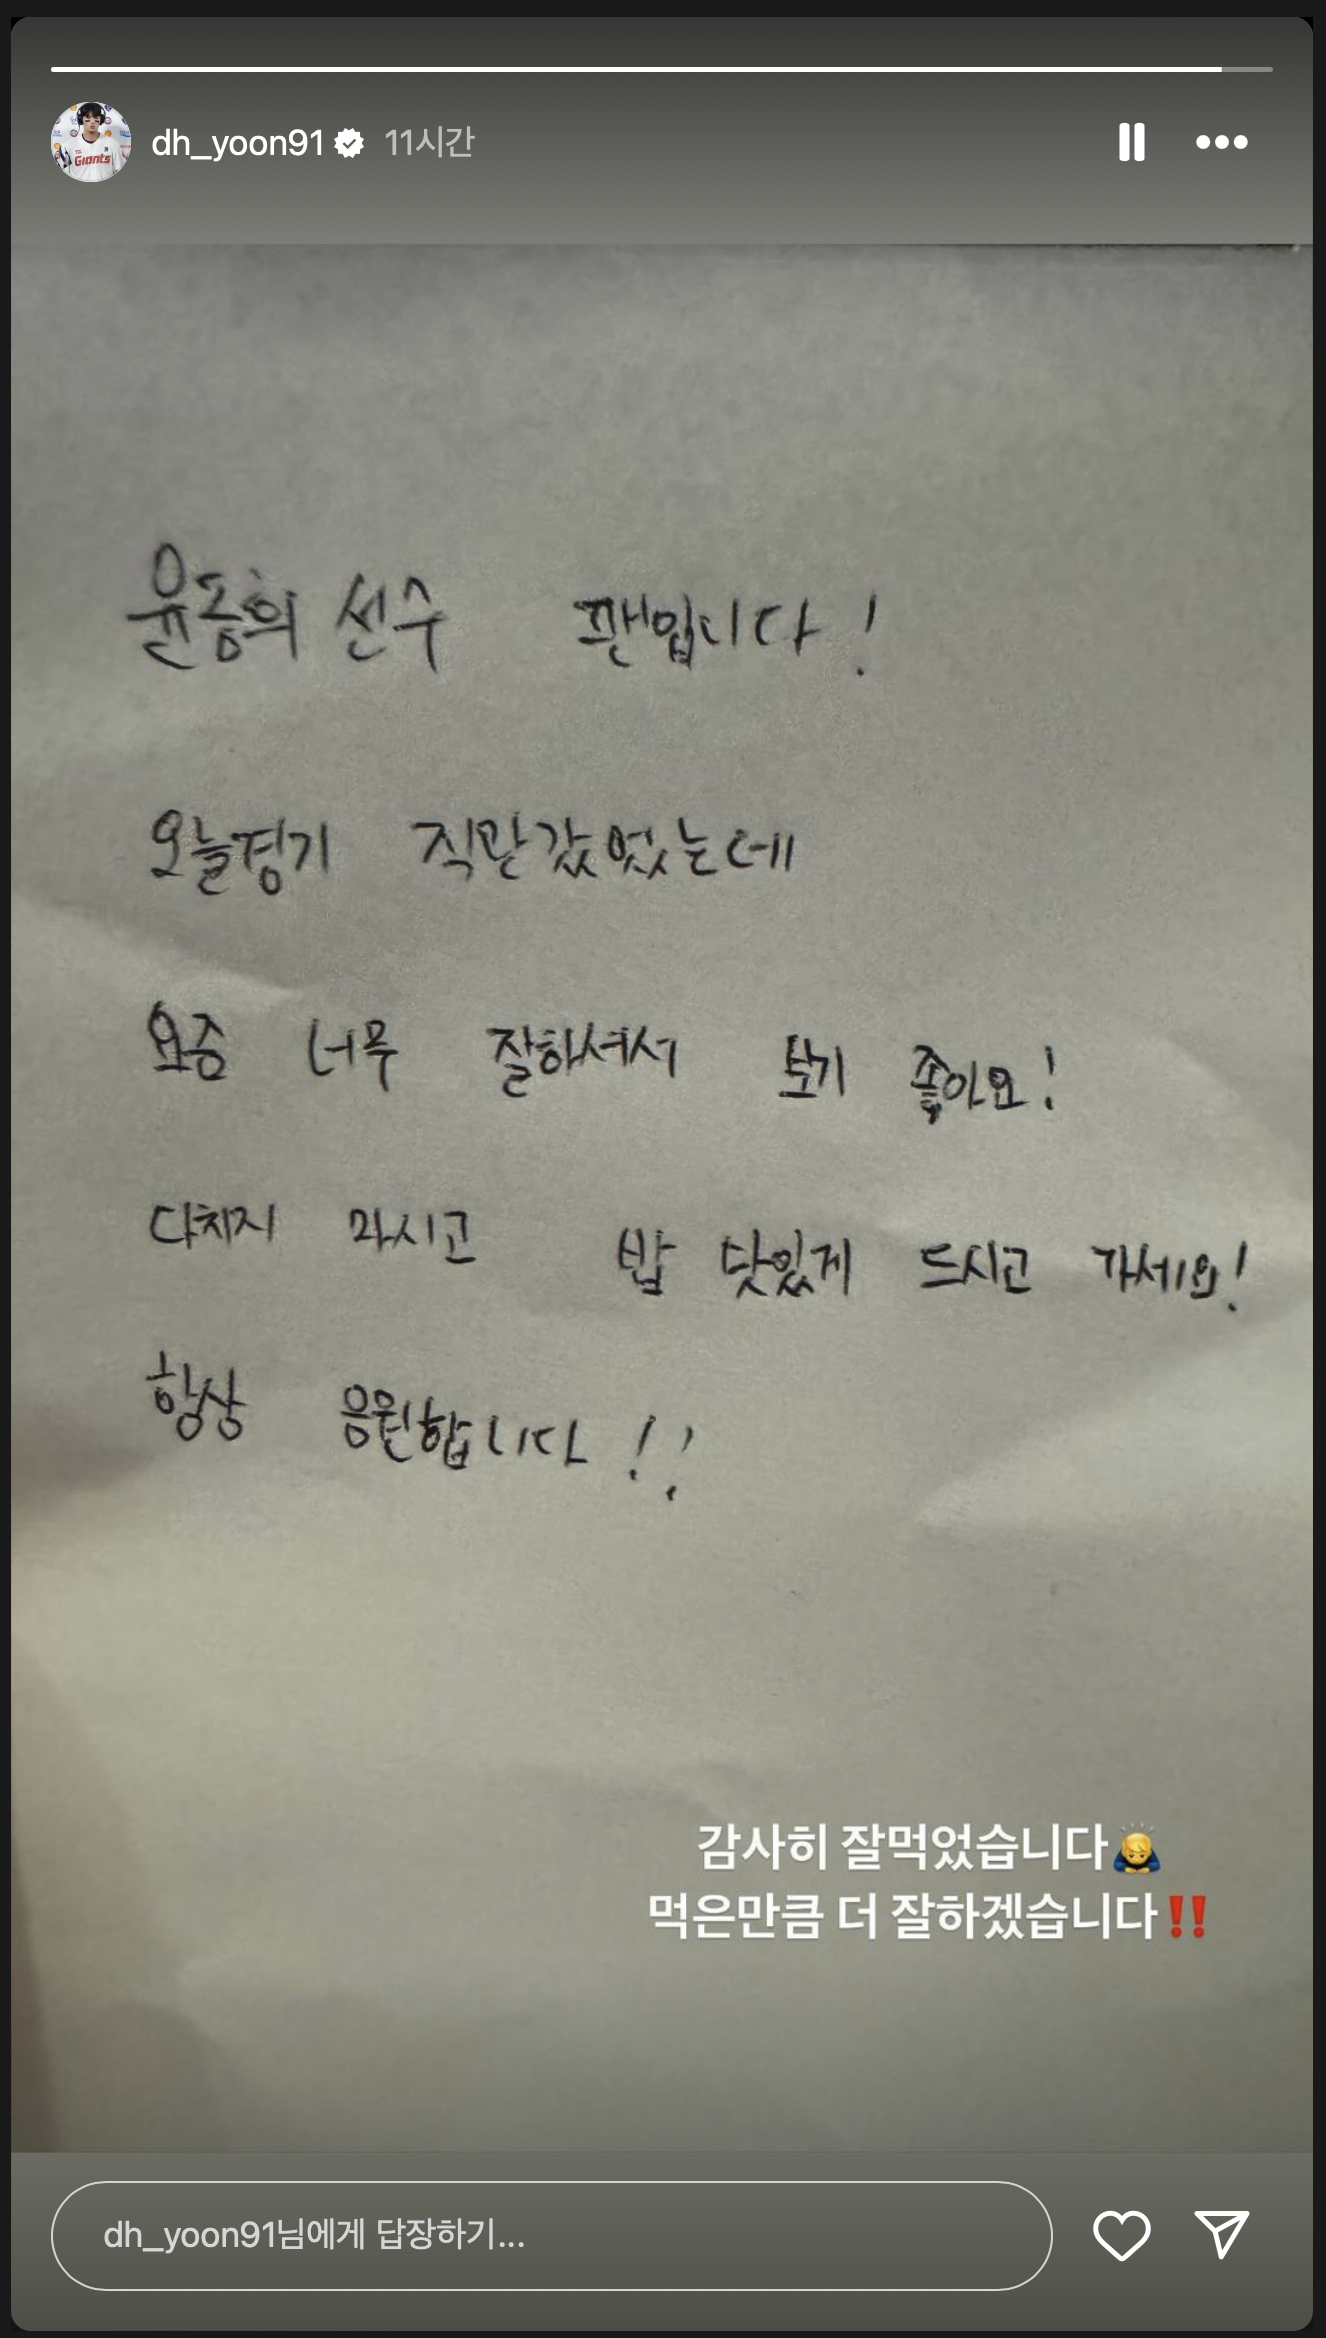 dh_yoon91 11시간
Giants
윤동희 선수 팬입니다!
오늘경기 직관갔었는데
요즘 너무 잘하셔서 보기 좋아요!
다치지 마시고 밥 맛있게 드시고 가세요!
항상 응원합니다!!
감사히 잘먹었습니다🙇
먹은만큼 더 잘하겠습니다‼️
dh_yoon91님에게 답장하기...